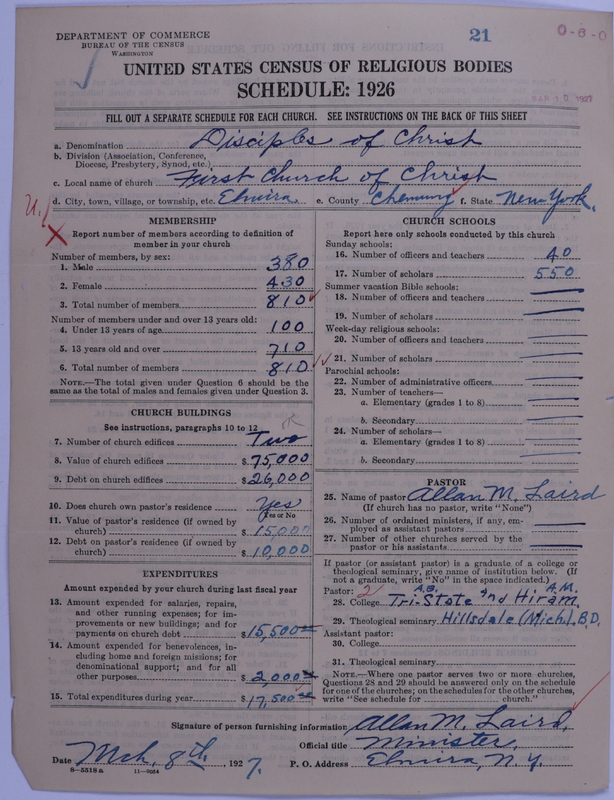 DEPARTMENT OF COMMERCE
BUREAU OF THE CENSUS
WASHINGTON
21
0-8-0
UNITED STATES CENSUS OF RELIGIOUS BODIES
SCHEDULE: 1926
FILL OUT A SEPARATE SCHEDULE FOR EACH CHURCH. SEE INSTRUCTIONS ON THE BACK OF THIS SHEET
a. Denomination Disciples of Christ
b. Division (Association, Conference,
Diocese, Presbytery, Synod, etc.)
c. Local name of church First Church of Christ
d. City, town, village, or township, etc. Elmira. e. County Chemung f. State New York.
U.
MEMBERSHIP
Report number of members according to definition of
member in your church
Number of members, by sex:
1. Male 380
2. Female 430
3. Total number of members 810
Number of members under and over 13 years old:
4. Under 13 years of age 100
5. 13 years old and over 710
6. Total number of members 810
NOTE.—The total given under Question 6 should be the
same as the total of males and females given under Question 3.
CHURCH BUILDINGS
See instructions, paragraphs 10 to 12
7. Number of church edifices Two
8. Value of church edifices $75,000
9. Debt on church edifices $26,000
10. Does church own pastor's residence Yes
Yes or No
11. Value of pastor's residence (if owned by
church) $15,000
12. Debt on pastor's residence (if owned by
church) $10,000
EXPENDITURES
Amount expended by your church during last fiscal year
13. Amount expended for salaries, repairs,
and other running expenses; for im-
provements or new buildings; and for
payments on church debt $15,500
14. Amount expended for benevolences, in-
cluding home and foreign missions; for
denominational support; and for all
other purposes $2000
15. Total expenditures during year $17,500
CHURCH SCHOOLS
Report here only schools conducted by this church
Sunday schools:
16. Number of officers and teachers 40
17. Number of scholars 550
Summer vacation Bible schools:
18. Number of officers and teachers
19. Number of scholars
Week-day religious schools:
20. Number of officers and teachers
21. Number of scholars
Parochial schools:
22. Number of administrative officers
23. Number of teachers—
a. Elementary (grades 1 to 8)
b. Secondary
24. Number of scholars—
a. Elementary (grades 1 to 8)
b. Secondary
PASTOR
25. Name of pastor Allan M. Laird
(If church has no pastor, write "None")
26. Number of ordained ministers, if any, em-
ployed as assistant pastors
27. Number of other churches served by the
pastor or his assistants
If pastor (or assistant pastor) is a graduate of a college or
theological seminary, give name of institution below. (If
not a graduate, write "No" in the space indicated.)
Pastor: 2 A.B. A.M.
28. College Tri-State and Hiram
29. Theological seminary Hillsdale (Mich.) B.D.
Assistant pastor:
30. College
31. Theological seminary
NOTE.—Where one pastor serves two or more churches,
Questions 28 and 29 should be answered only on the schedule
for one of the churches; on the schedules for the other churches,
write "See schedule for church."
Signature of person furnishing information Allan M. Laird.
Official title Minister.
Date Mch. 8th, 1927. P. O. Address Elmira, N.Y.
8—5318a 11—9034